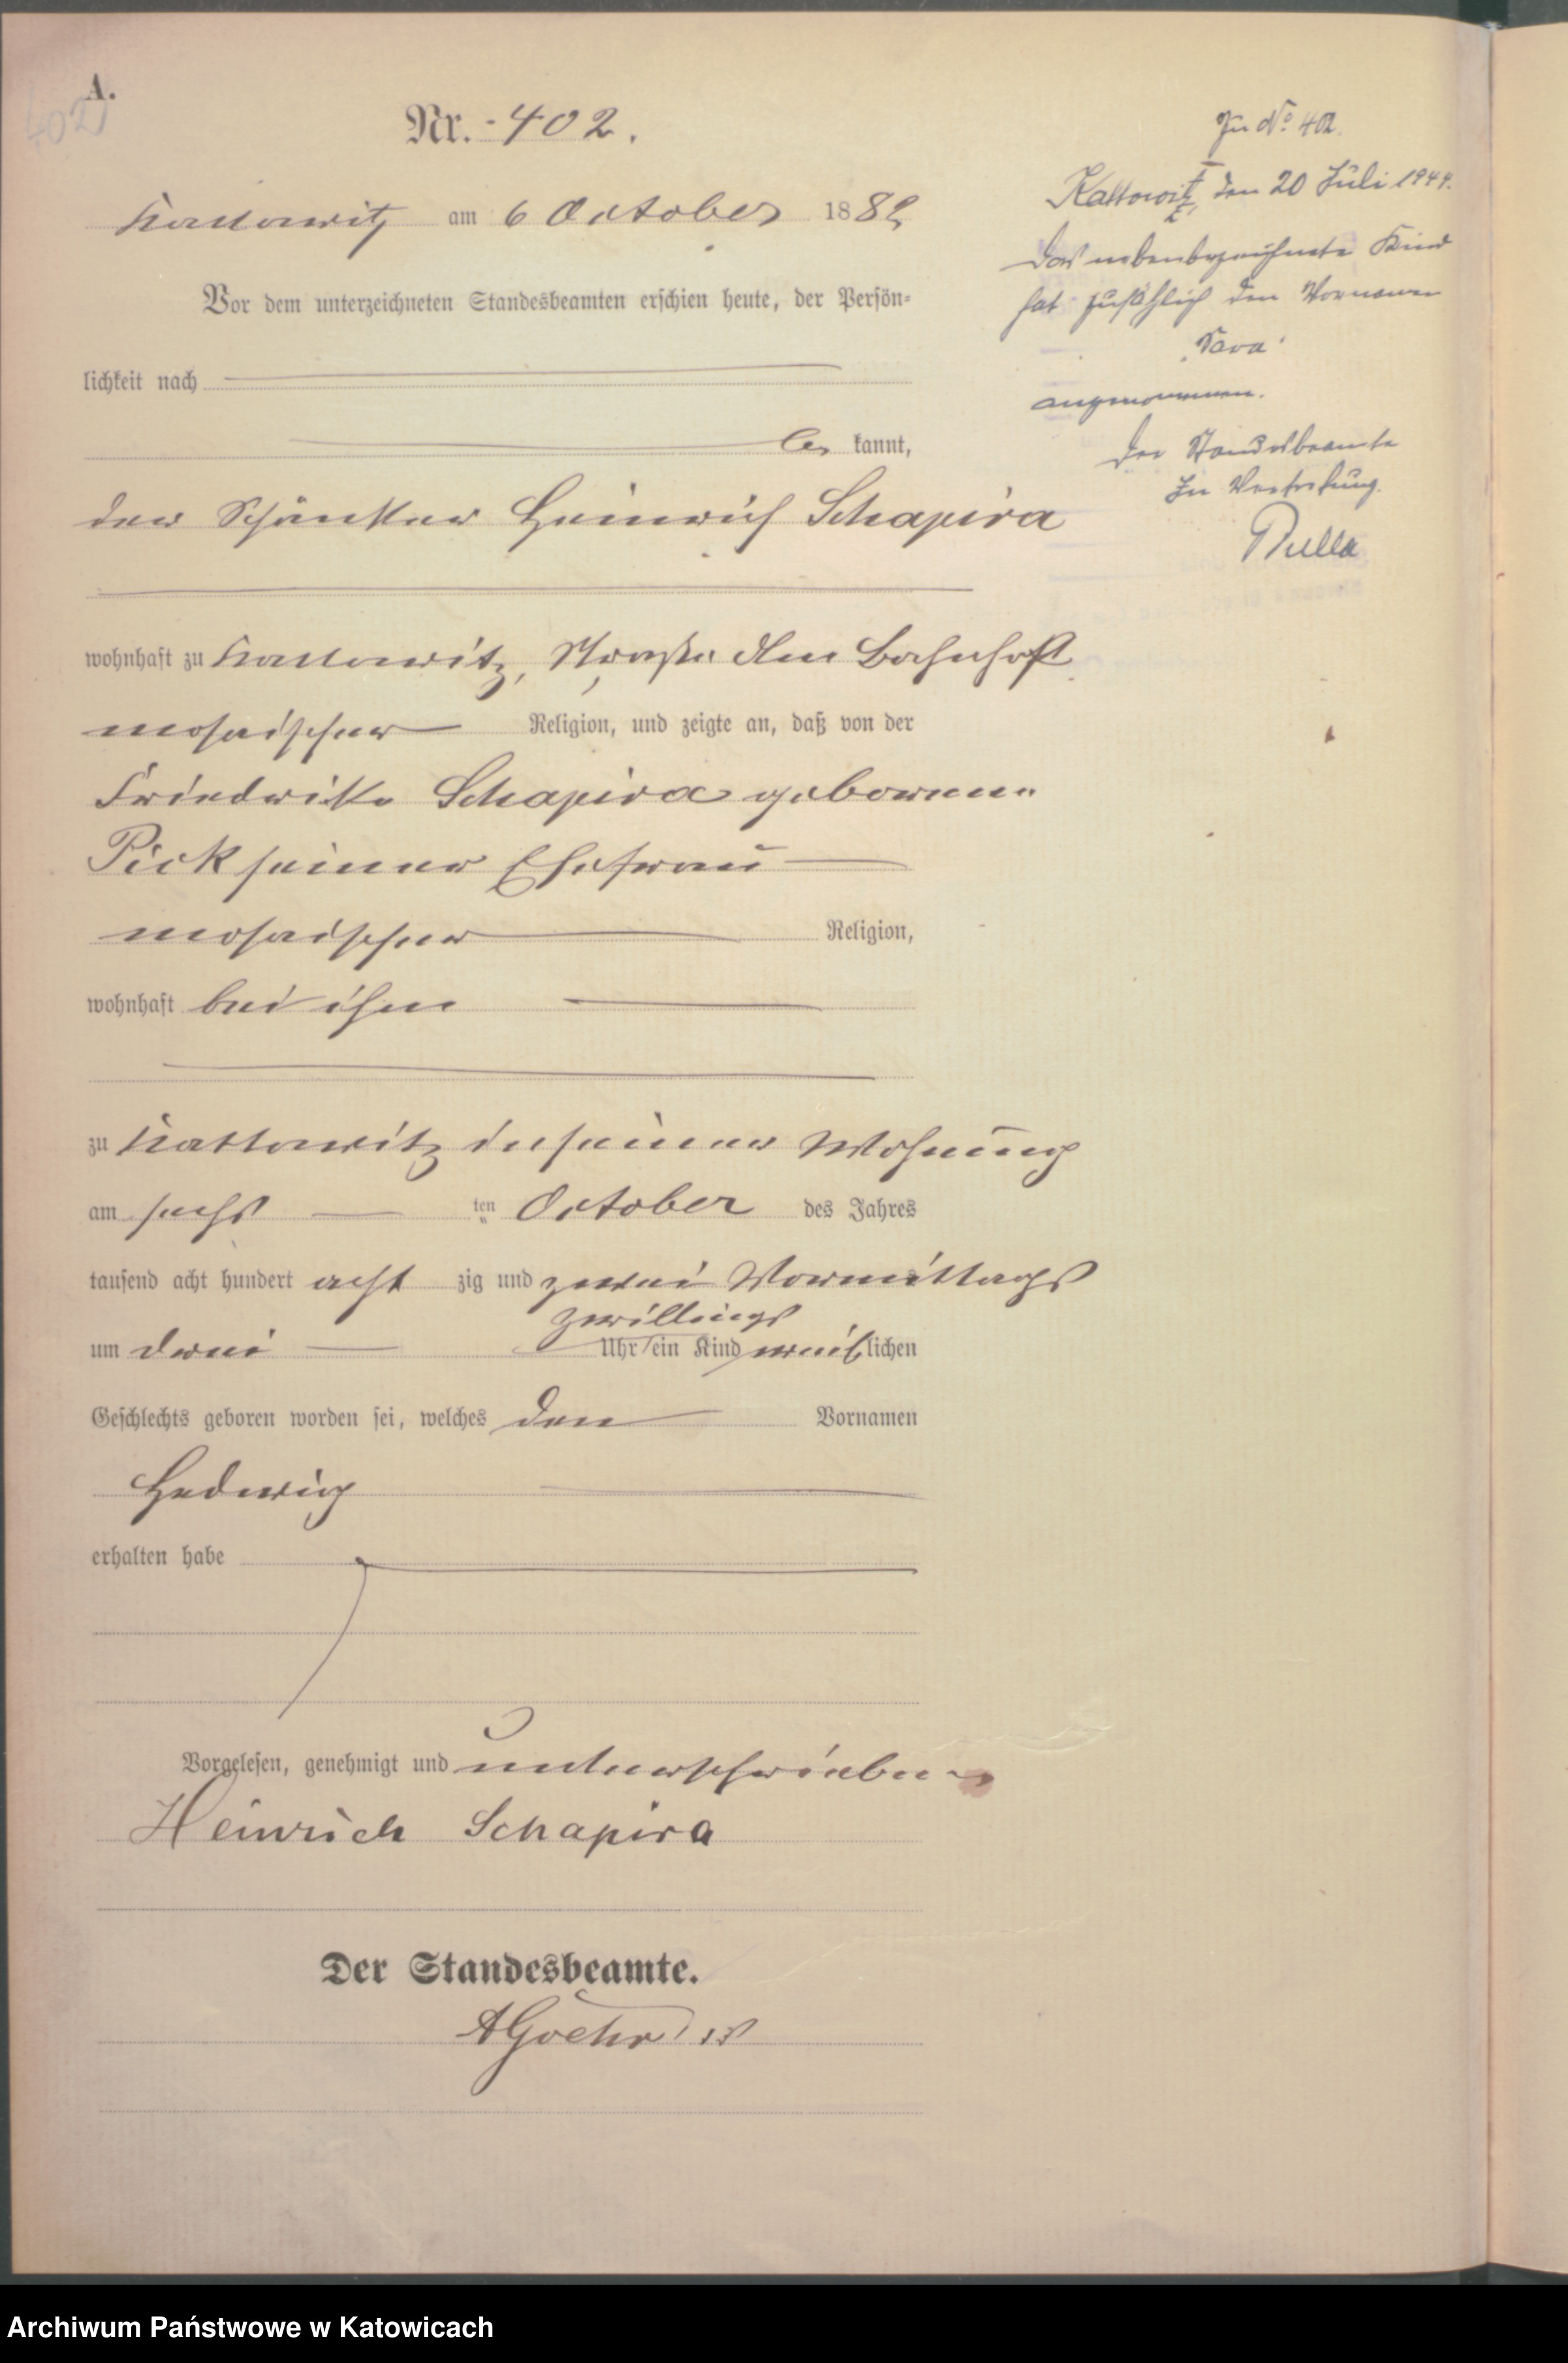 A.
402
Nr. 402.
Kattowitz am 6 October 1882
Vor dem unterzeichneten Standesbeamten erschien heute, der Persön-
lichkeit nach
be kannt,
der Schänker Heinrich Schapira
wohnhaft zu Kattowitz, Straße Am Bahnhof
mosaischer Religion, und zeigte an, daß von der
Friedrike Schapira geborenen
Pick seiner Ehefrau
mosaischer Religion,
wohnhaft bei ihm
zu Kattowitz in seiner Wohnung
am sechs ten October des Jahres
tausend acht hundert acht zig und zwei Vormittags
zwillings
um drei Uhr ein Kind weiblichen
Geschlechts geboren worden sei, welches den Vornamen
Hedwig
erhalten habe
Vorgelesen, genehmigt und unterschrieben
Heinrich Schapira
Der Standesbeamte.
Zu No 402.
Kattowitz, den 20 Juli 1944.
Das nebenbezeichnete Kind
hat zusätzlich den Vornamen
"Sara"
angenommen.
Der Standesbeamte
In Vertretung.
Archiwum Państwowe w Katowicach